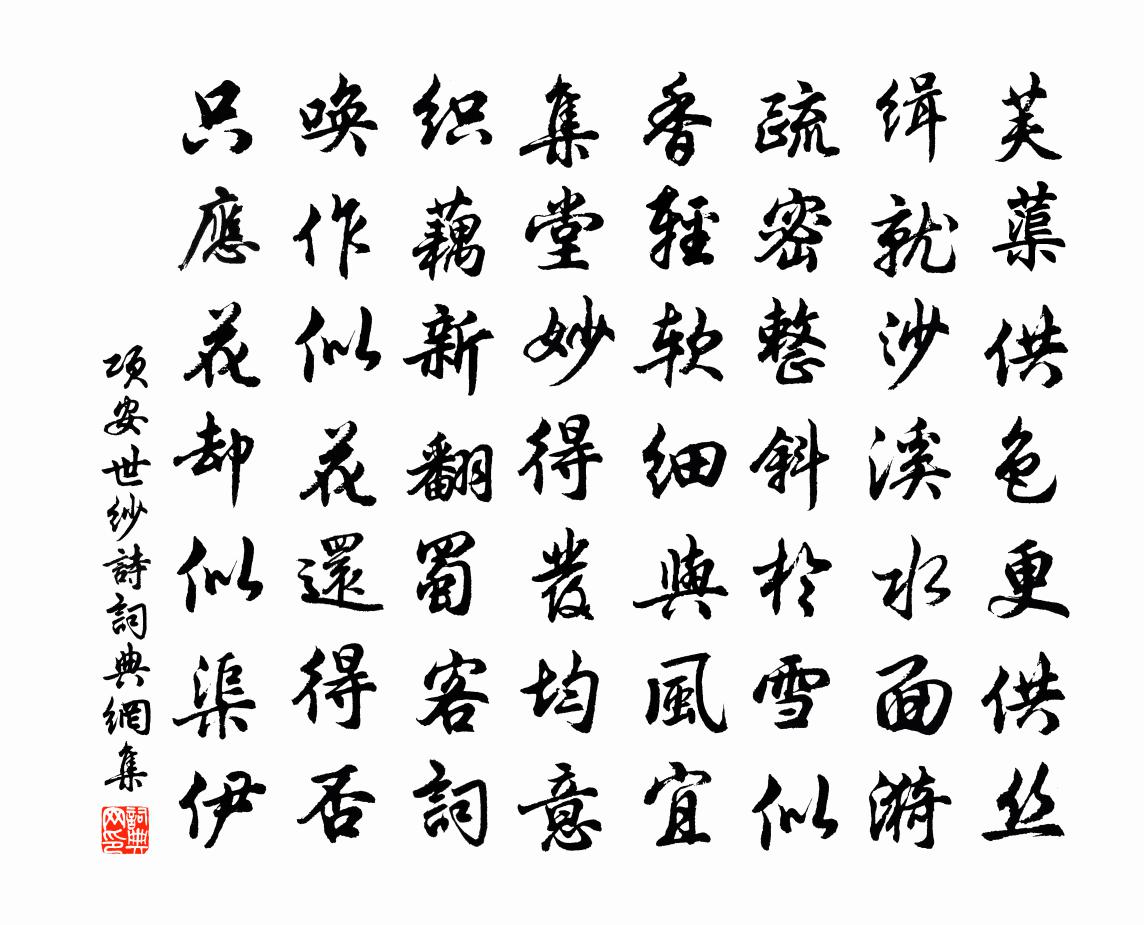 芙蕖供色更供丝
缉就沙溪水面漪
疏密整斜於雪似
香轻软细與風宜
集堂妙得發均意
织藕新翻蜀客詞
唤作似花還得否
只應花却似渠伊
项安世纱詩詞典網集
詞典
网印